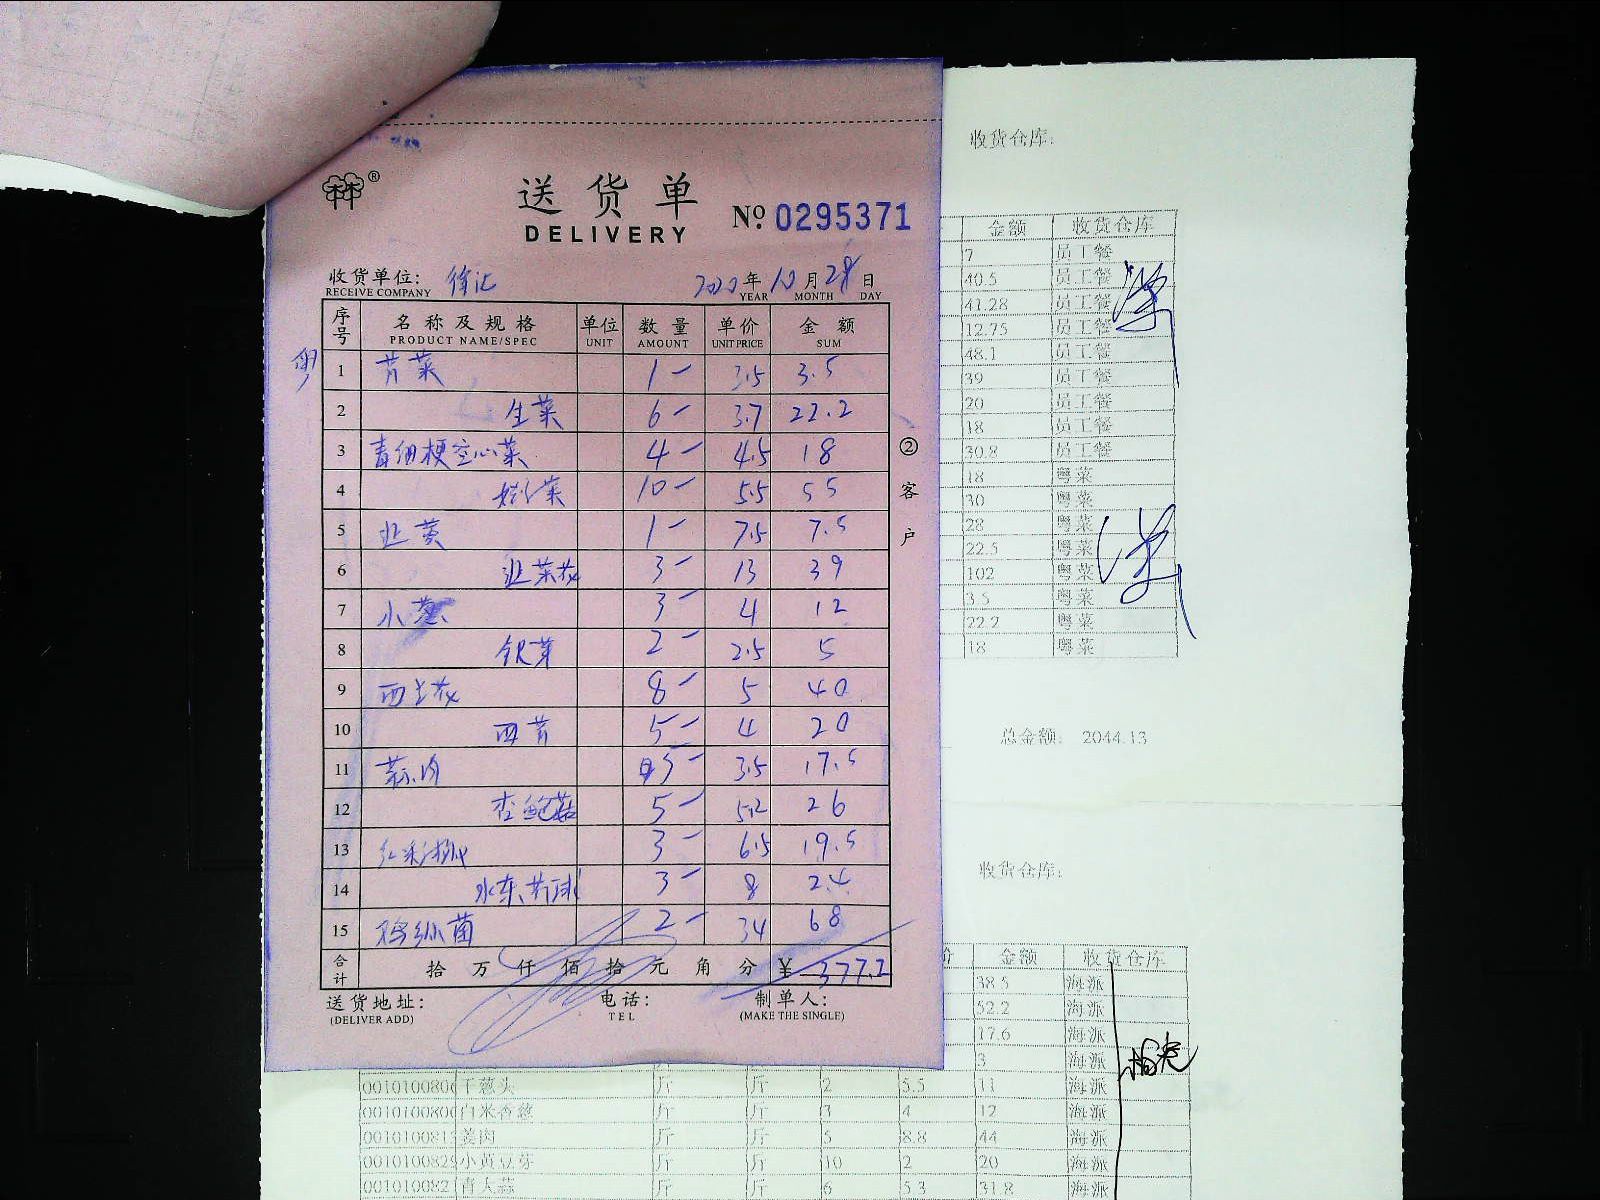 送货单
DELIVERY
No. 0295371
收货单位: 徐汇 2020年10月28日
RECEIVE COMPANY YEAR MONTH DAY
序号 名称及规格 单位 数量 单价 金额
PRODUCT NAME/SPEC UNIT AMOUNT UNIT PRICE SUM
粤
1 芹菜 1- 3.5 3.5
2 生菜 6- 3.7 22.2
3 青细梗空心菜 4- 4.5 18
4 菜 10- 5.5 55
5 韭黄 1- 7.5 7.5
6 韭菜花 3- 13 39
7 小葱 3- 4 12
8 银芽 2- 2.5 5
9 西兰花 8- 5 40
10 西芹 5- 4 20
11 5- 3.5 17.5
12 杏鲍菇 5- 5.2 26
13 红彩椒 3- 6.5 19.5
14 水东芥 3- 8 24
15 鸡枞菌 2- 34 68
合计 拾 万 仟 佰 拾 元 角 分 ¥ 377.2
送货地址: 电话: 制单人:
(DELIVER ADD) TEL (MAKE THE SINGLE)
②客户
收货仓库:
金额 收货仓库
7 员工餐
40.5 员工餐
41.28 员工餐
12.75 员工餐
48.1 员工餐
39 员工餐
20 员工餐
18 员工餐
30.8 员工餐
18 粤菜
30 粤菜
28 粤菜
22.5 粤菜
102 粤菜
3.5 粤菜
22.2 粤菜
18 粤菜
总金额: 2044.13
收货仓库:
价 金额 收货仓库
38.5 海派
52.2 海派
17.6 海派
3 海派
干葱头 斤 斤 2 5.5 11 海派
白米香葱 斤 斤 3 4 12 海派
姜肉 斤 斤 5 8.8 44 海派
小黄豆芽 斤 斤 10 2 20 海派
青大蒜 斤 斤 6 5.3 31.8 海派